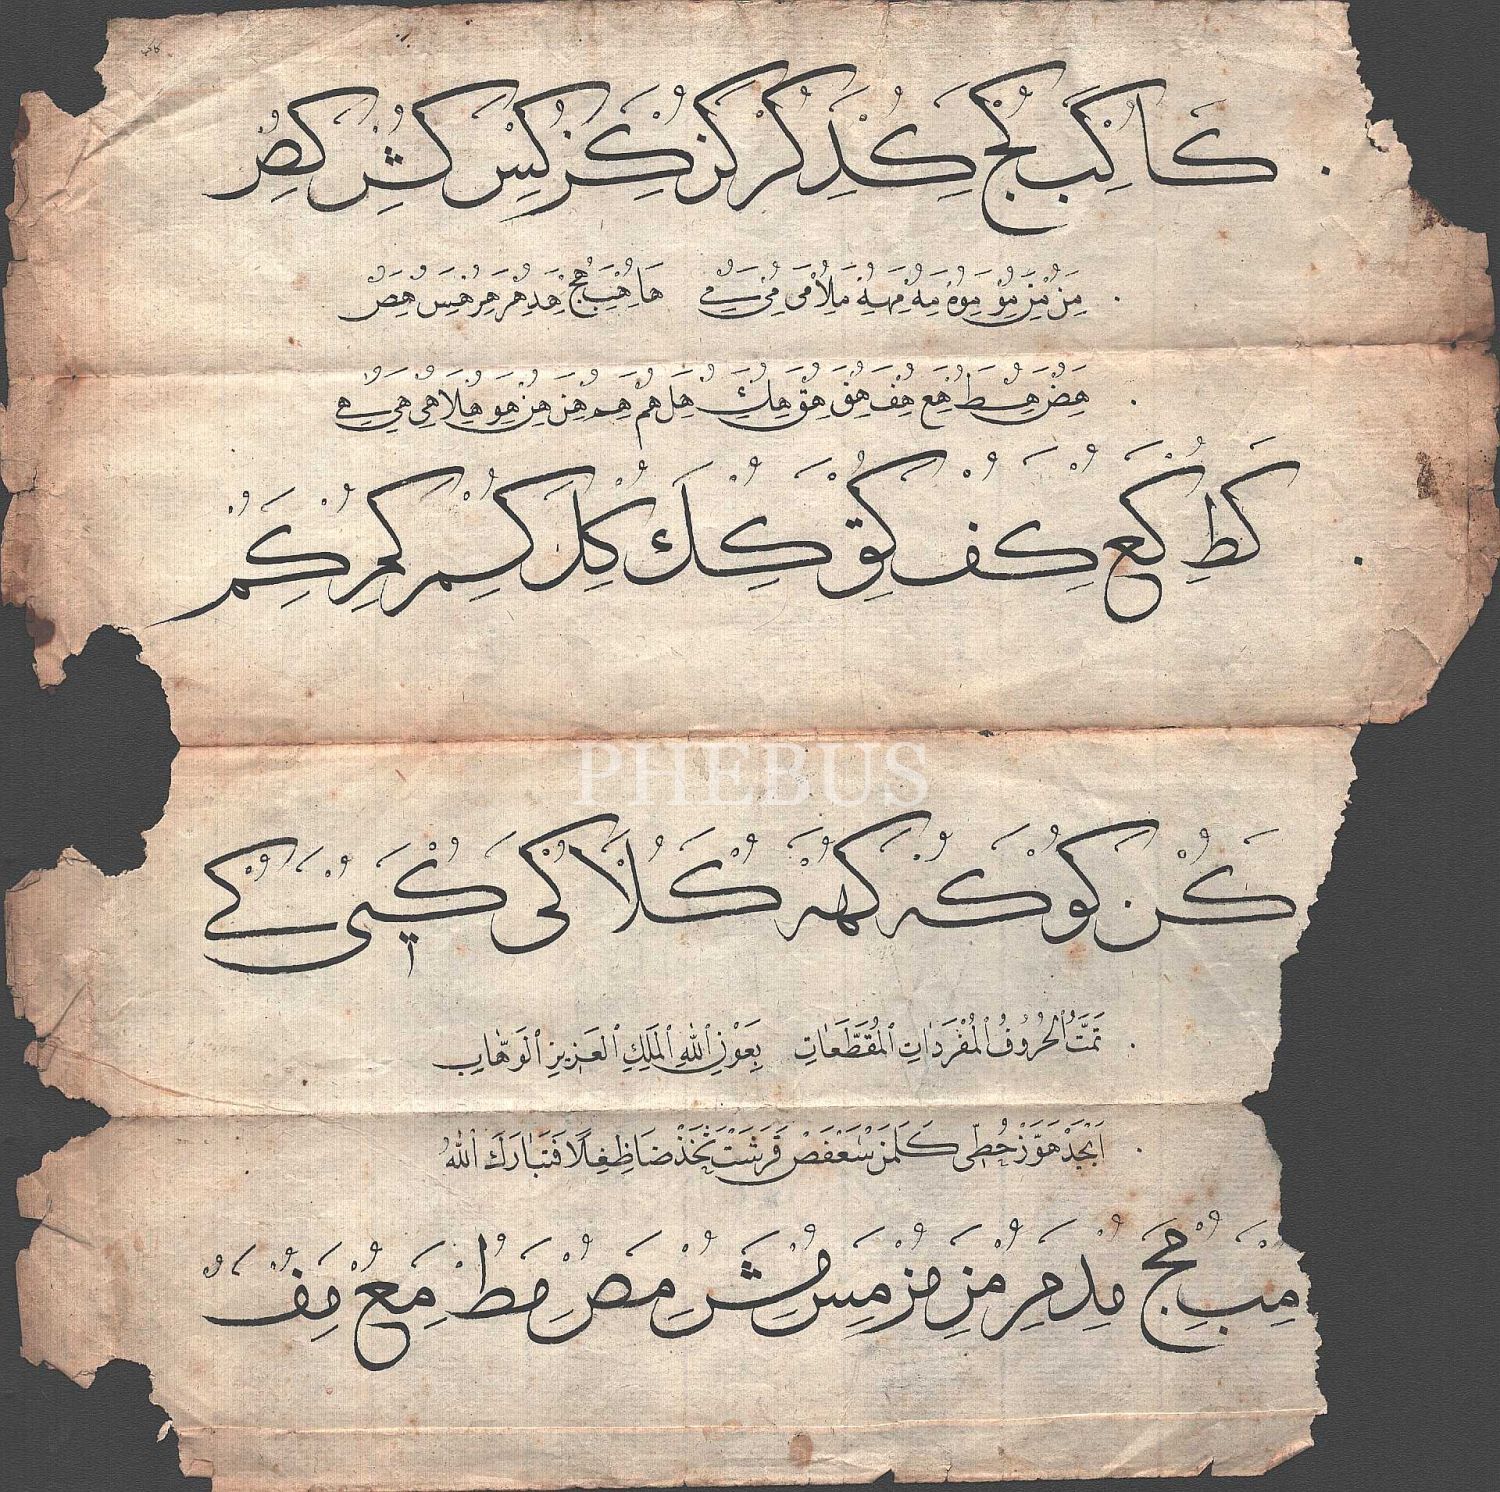 كا كب كج كد كر كز كز كس كش كص
من منز مو موه مه مهه ملا مى مى مے ها هب هج هد هر هز هس هص
هض هط هع هف هق هق هك هل هم هم هن هن هو هلا هى هى هے
كط كع كف كق كك كل كم كم كم
PHEBUS
كن كو كه كهه كلا كى كى كے
تَمَّتْ الْحُرُوفُ الْمُفْرَدَاتِ الْمُقَطَّعَاتِ بِعَوْنِ اللهِ الْمَلِكِ الْعَزِيزِ الْوَهَّابِ
اَبْجَدْ هَوَّزْ حُطِّى كَلَمَنْ سَعْفَصْ قَرَشَتْ ثَخَّذْ ضَاظِغِلًا فَتَبَارَكَ اللهُ
مب مج مد مر مز مز مس مش مص مط مع مف